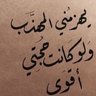 يهزمني المهذب
ولو كانت حجتي
أقوى